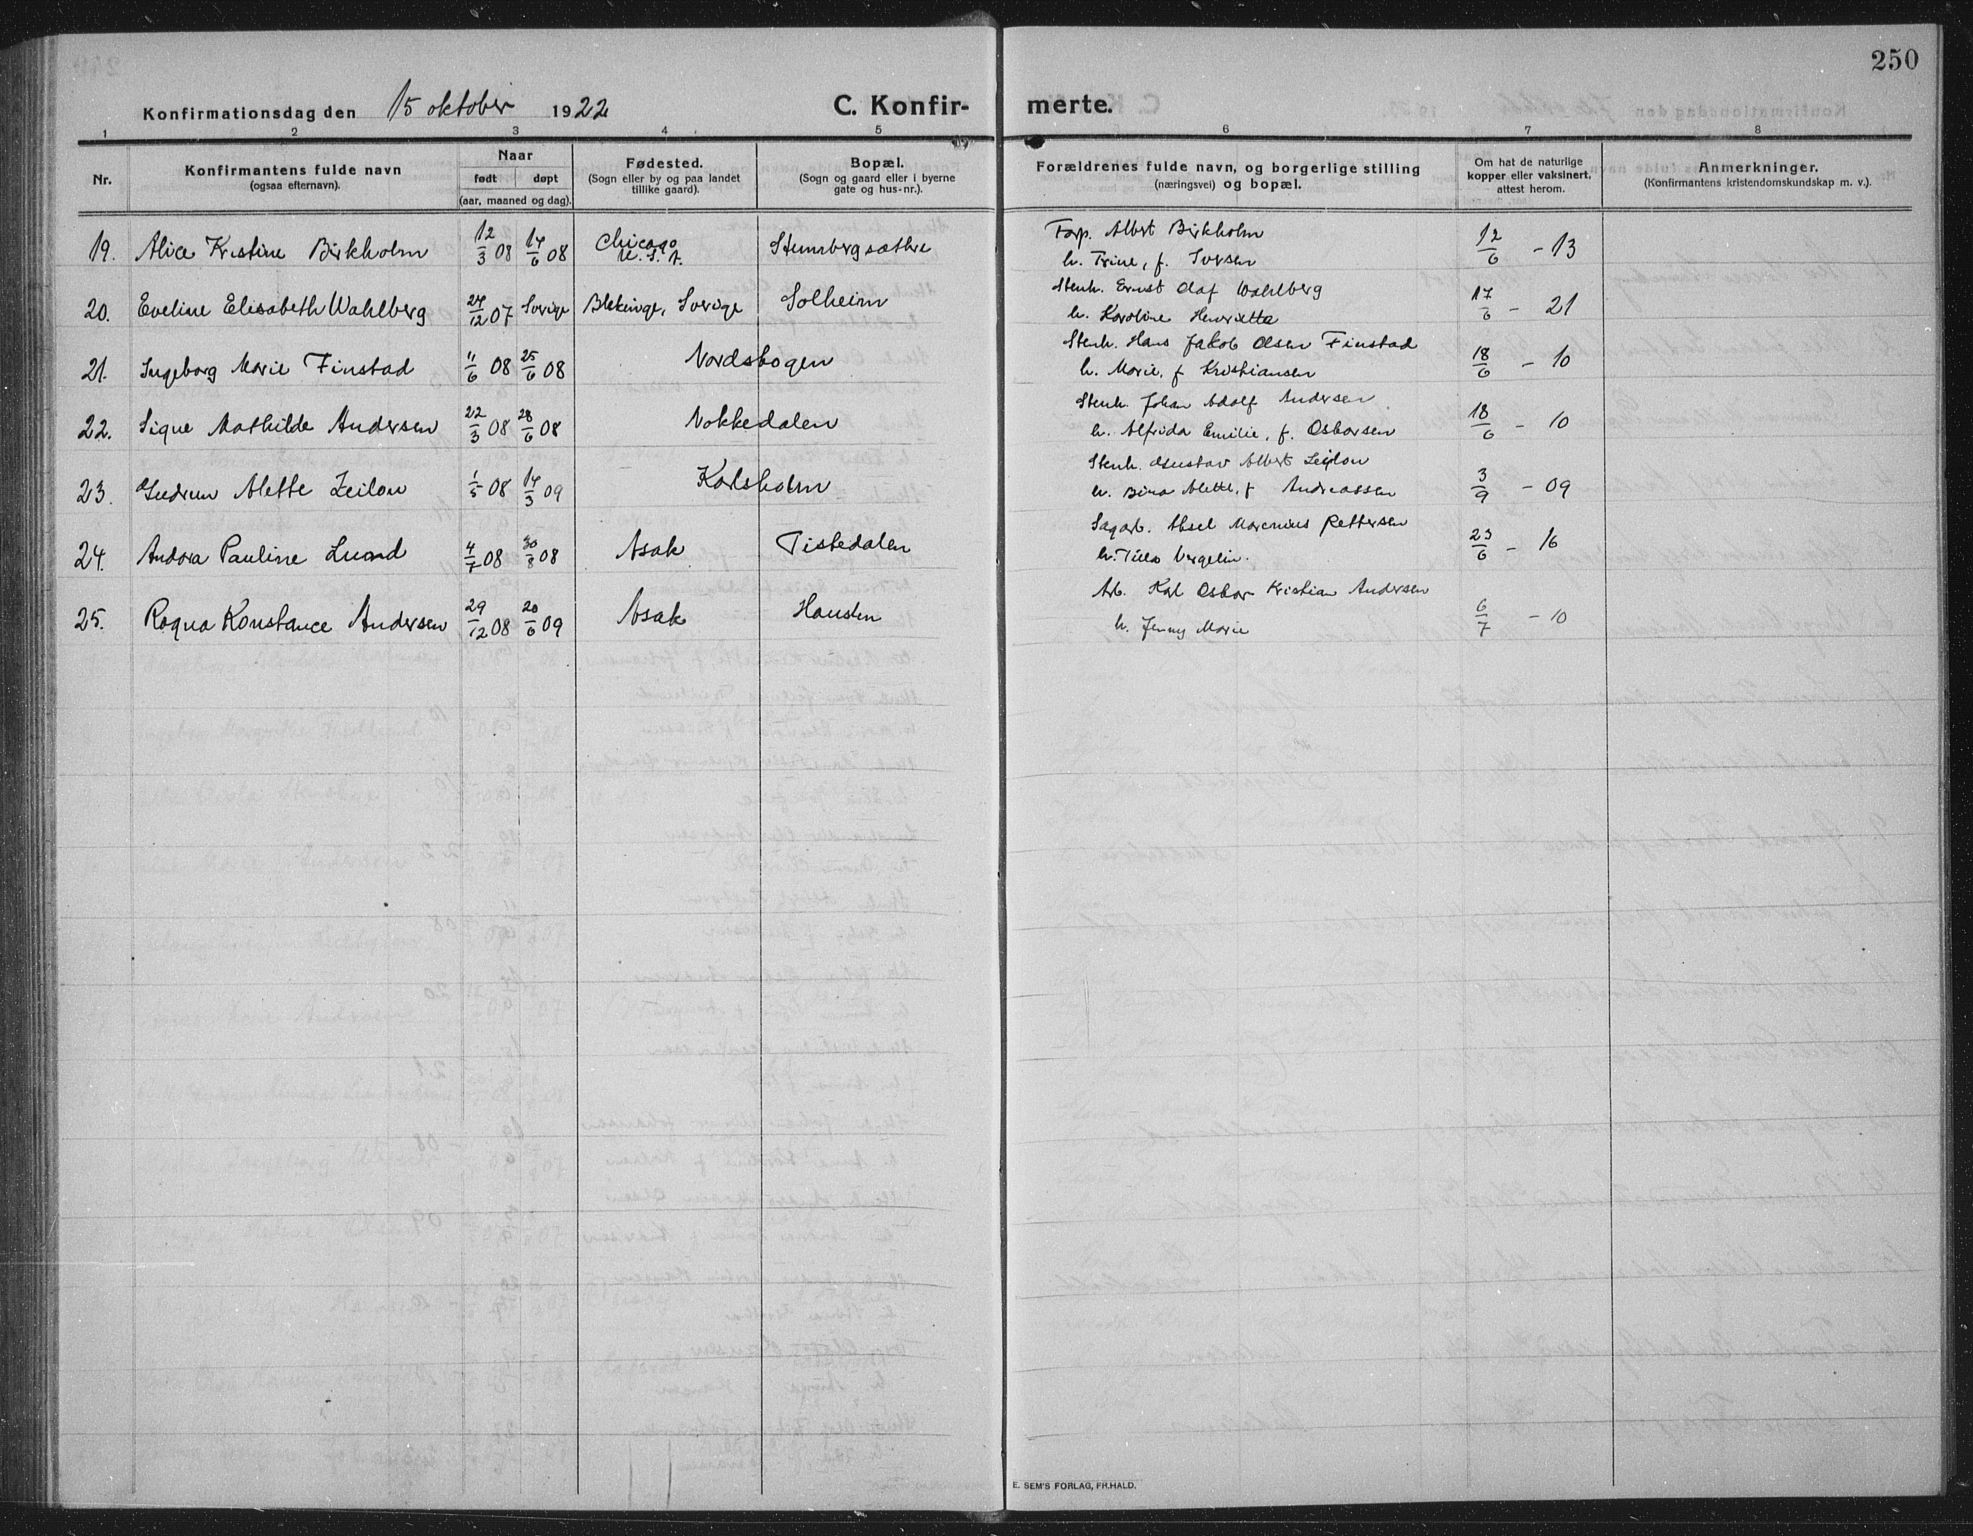 250
Konfirmationsdag den 15 oktober 1922
C. Konfirmerte.
1 2 3 4 5 6 7 8
Nr.
Konfirmantens fulde navn
(ogsaa efternavn).
Naar
født døpt
(aar, maaned og dag).
Fødested.
(Sogn eller by og paa landet
tillike gaard).
Bopæl.
(Sogn og gaard eller i byerne
gate og hus-nr.).
Forældrenes fulde navn, og borgerlige stilling
(næringsvei) og bopæl.
Om hat de naturlige
kopper eller vaksinert,
attest herom.
Anmerkninger.
(Konfirmantens kristendomskundskap m. v.).
19. Alice Kristine Birkholm 12/3 08 14/6 08 Chicago U. S. A. Stensbergsæthre
Forp. Albert Birkholm
h. Trine, f. Iversen 12/6 - 13
20. Eveline Elisabeth Wahlberg 24/12 07 Sverige Blekinge, Sverige Solheim
Stenh. Ernst Olaf Wahlberg
h. Karoline Henriette 17/6 - 21
21. Ingeborg Marie Finstad 11/6 08 25/6 08 Nordskogen
Stenh. Hans Jakob Olsen Finstad
h. Marie, f Kristiansen 18/6 - 10
22. Signe Mathilde Andersen 22/3 08 28/6 08 Nokkedalen
Stenh. Johan Adolf Andersen
h. Alfrida Emilie, f. Oskarsen 18/6 - 10
23. Gudrun Alette Zeilon 1/5 08 14/3 09 Karlsholm
Stenh. Gustav Albert Zeilon
h. Bina Alette, f Andreassen 3/9 - 09
24. Andora Pauline Lund 08 30/8 08 Asak Tistedalen
Sagarb. Aksel Marenius Pettersen
h. 23/6 - 16
25. Ragna Konstance Andersen 29/12 08 20/6 09 Asak Hansten
Arb. Karl Oskar Kristian Andersen
h. Jenny Marie 6/7 - 10
E. SEM'S FORLAG, FR.HALD.